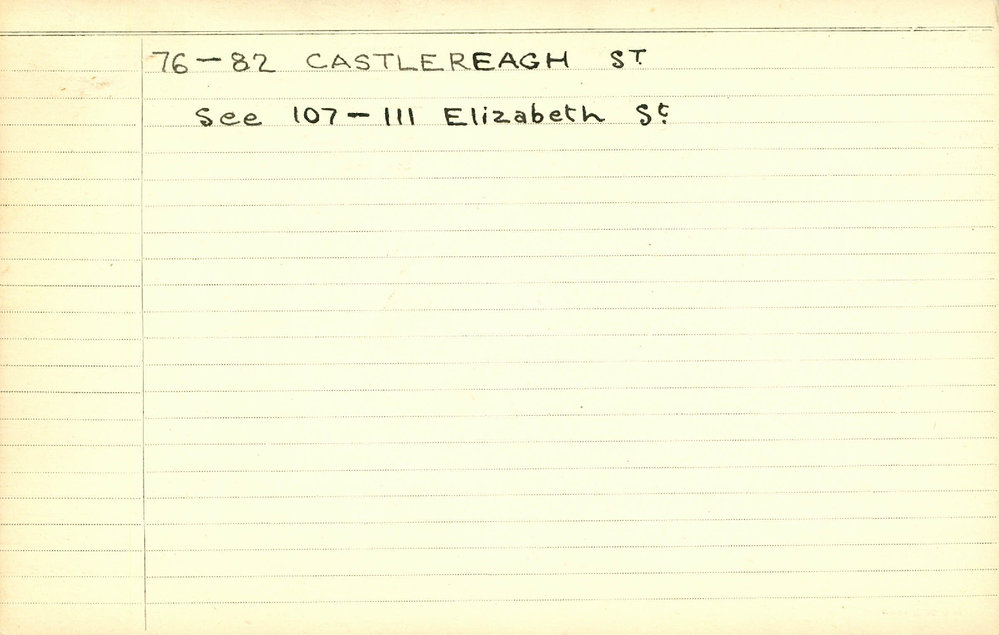 76-82 CASTLEREAGH ST
See 107-111 Elizabeth St